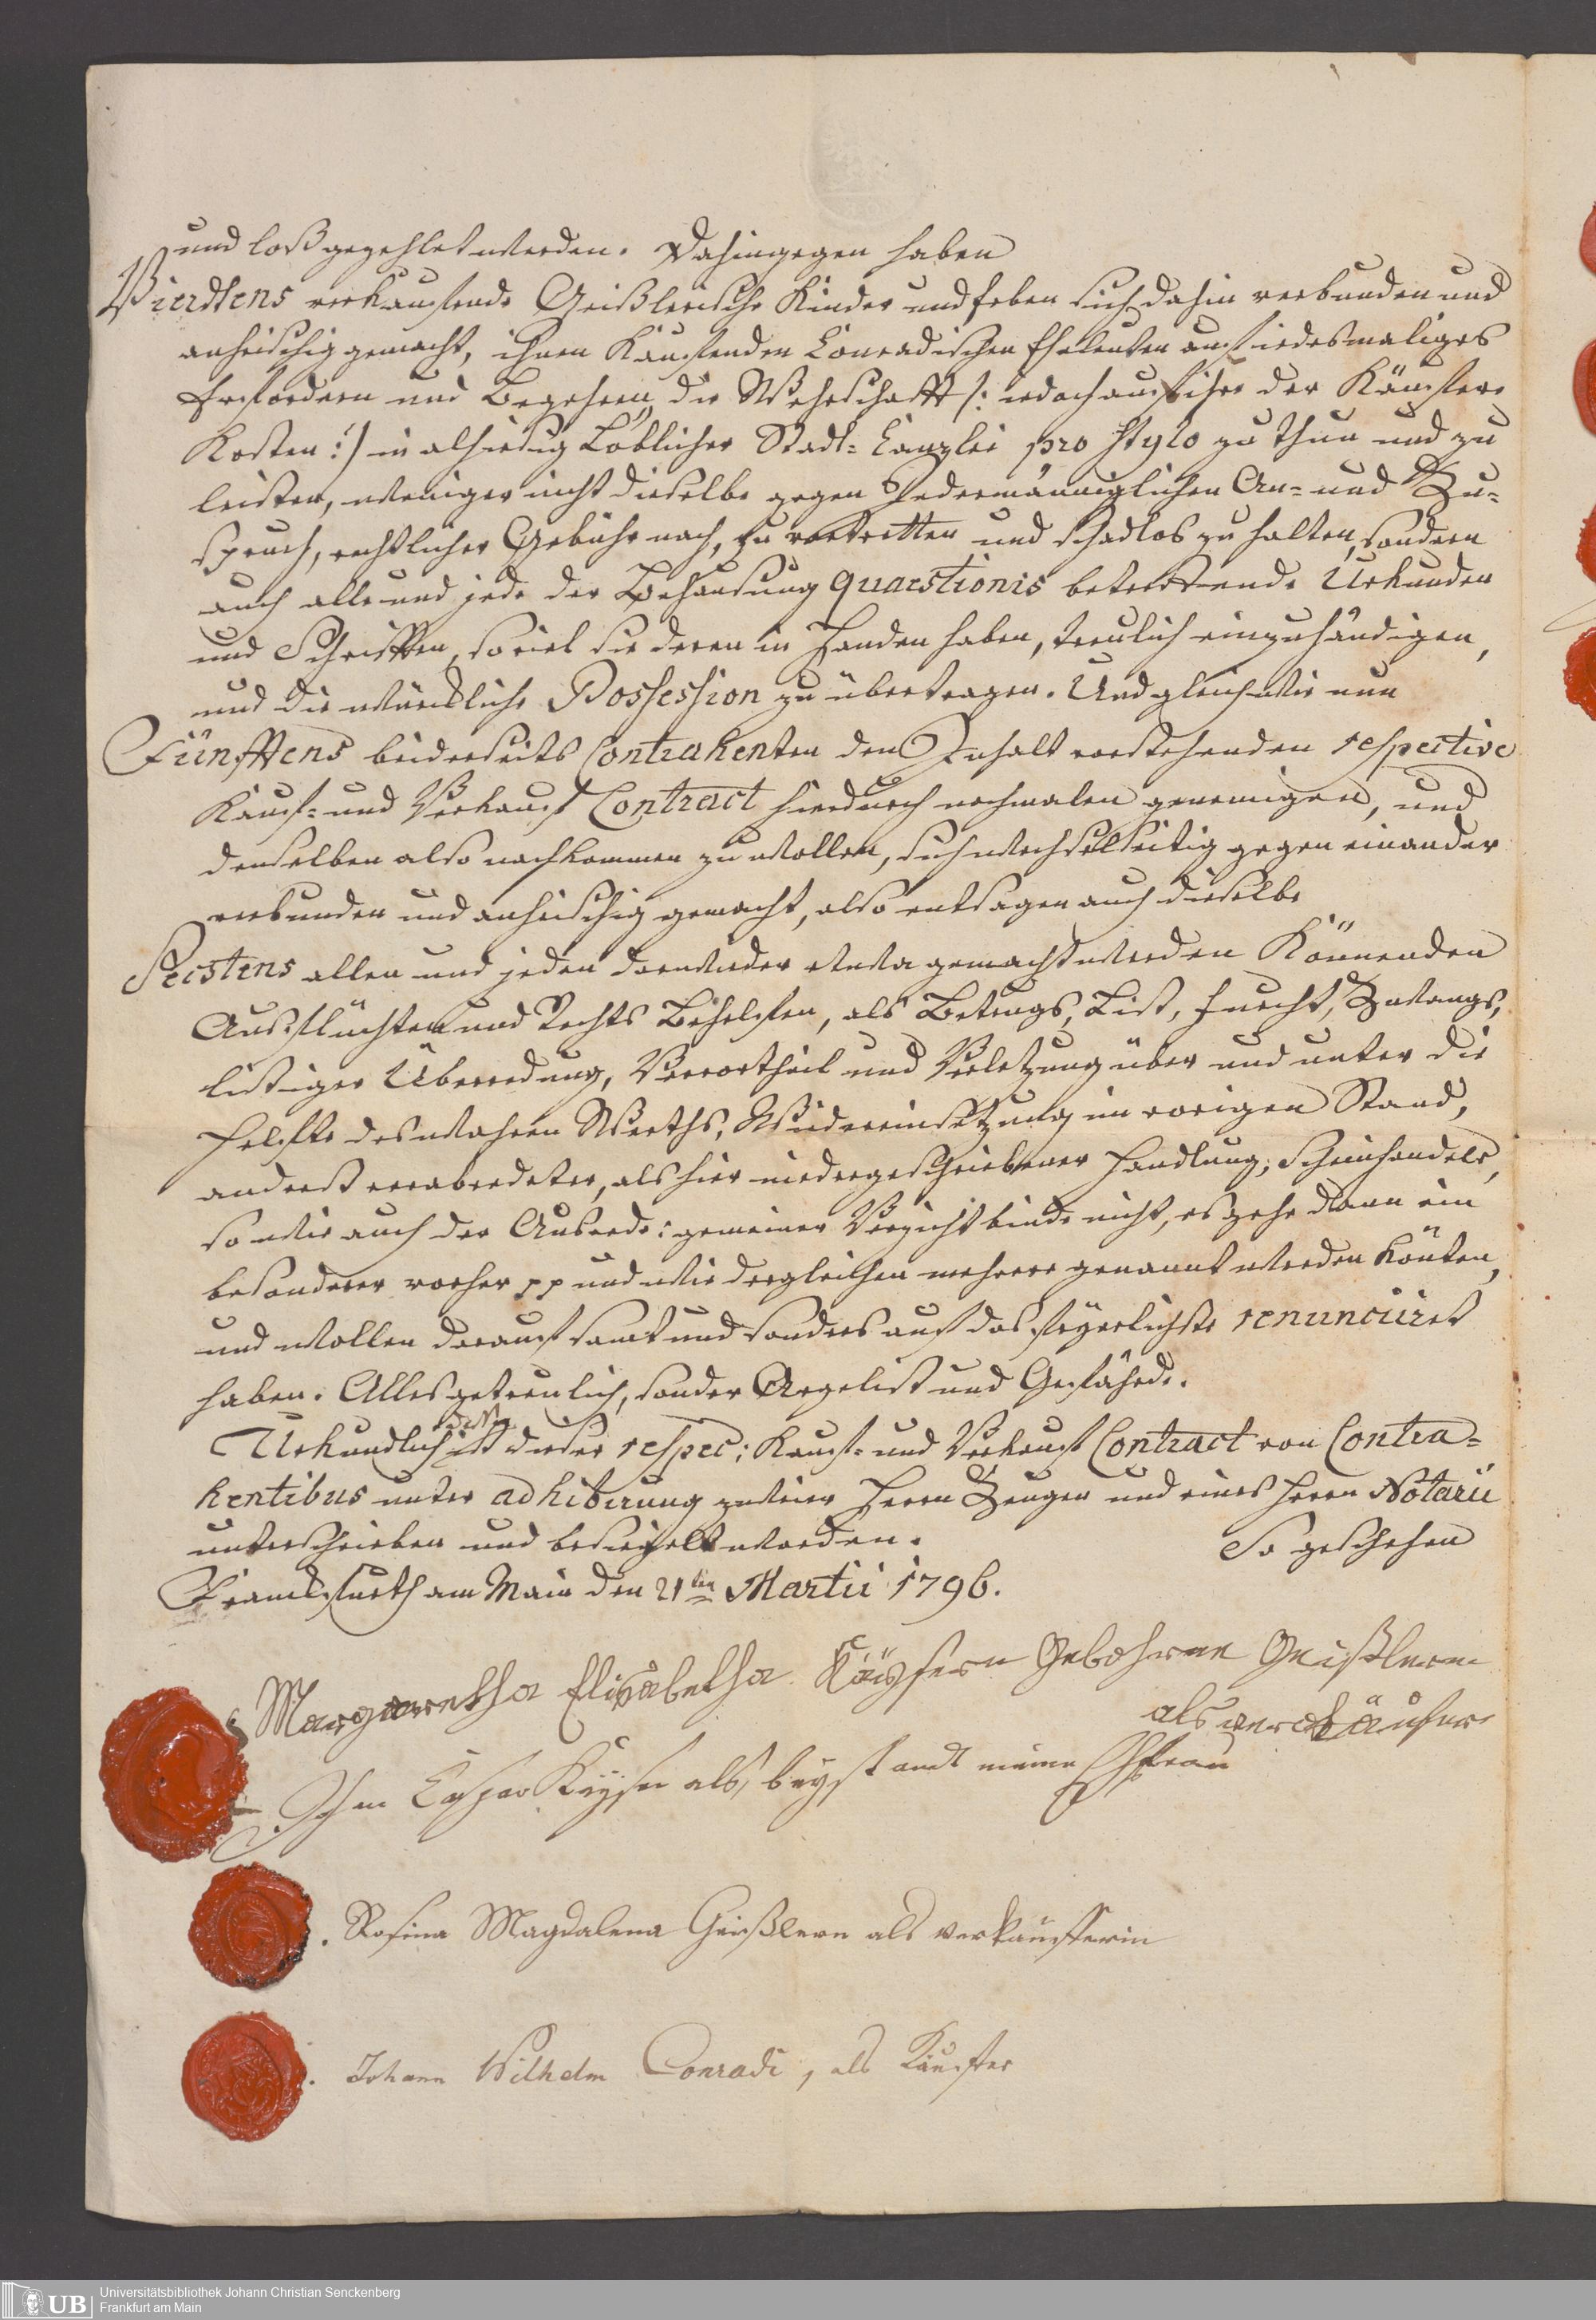 und loßgezehlet werden. Dahingegen haben
Vierdtens verkaufende Geißlerische Kinder und Erben sich dahin verbunden und
anheischig gemacht, ihnen Kaufenden Conradischen Eheleuten auf iedesmaliges
Erfordern und Begehren, die Wehrschafft /: iedoch auf ihre der Käufere
Kosten :/ in alhiesig Löblicher Stadt-Canzlei pro stylo zu thun und zu
leisten, weniger nicht dieselbe gegen Jedermänniglichen An- und Zu-
spruch, rechtlicher Gebühr nach, zu vertretten und schadlos zu halten, sondern
auch alle und jede der Behausung quaestionis betreffende Urkunden
und Schrifften, soviel sie deren in Handen haben, treulich einzuhändigen,
und die würckliche Possession zu übertragen. Und gleichwie nun
Fünfftens beiderseits Contrahenten den Inhalt vorstehenden respective
Kauf- und Verkauf Contract hierdurch nochmalen genemigen, und
demselben also nachkommen zu wollen, sich wechselseitig gegen einander
verbunden und anheischig gemacht, also entsagen auch dieselbe
Secstens allen und jeden darwieder etwa gemacht werden Könnenden
Ausflüchten und Rechts Behelfen, als Betrugs, List, Furcht, Zwangs,
listiger Überredung, Vervortheil und Verletzung über und unter die
Helfte des wahren Werths, Wiedereinsetzung im vorigen Stand,
anderst verabredeter, als hier niedergeschriebener Handlung, Scheinhandels,
so wie auch der Ausrede: gemeiner Verzicht binde nicht, es gehe dann ein
besonderer vorher pp und wie dergleichen mehrere genannt werden könten,
und wollen darauf samt und sonders auf das feyerlichste renunciiret
haben. Alles getreulich, sonder Argelist und Gefährde.
Urkundlich dessen ist dieser respec: Kauf- und Verkauf Contract von Contra-
hentibus unter adhibirung zweier Herrn Zeugen und eines Herrn Notarii
unterschrieben und besiegelt worden. So geschehen
Franckfurth am Main den 21ten Martii 1796.
Margaretha Elisabetha Käysern Gebohrne Geißlern
als verckäufere
Johan Casper Keyser als beystandt meiner Ehfrau
Rosina Magdalena Geißlern als Verkäufferin
Johann Wilhelm Conradi, als Käuffer
UB Universitätsbibliothek Johann Christian Senckenberg
Frankfurt am Main